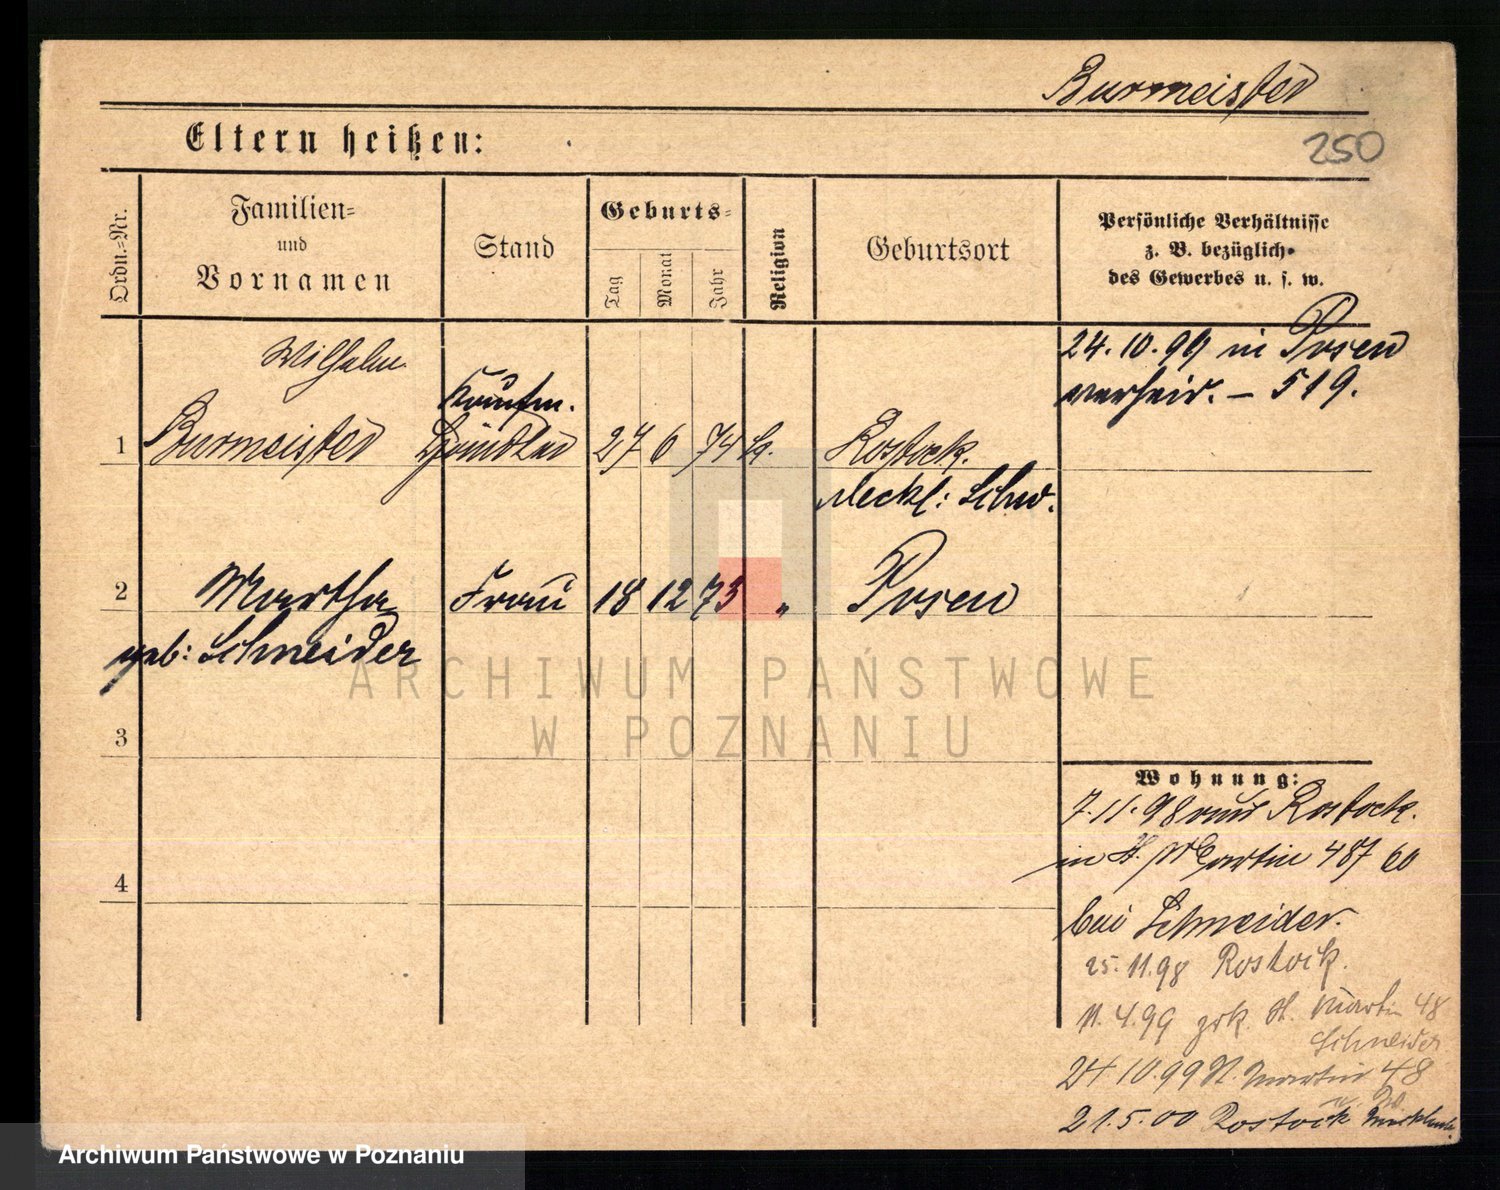 Burmeister
Eltern heißen:
250
Ordn.=Nr.
Familien=
und
Vornamen
Stand
Geburts=
Tag
Monat
Jahr
Religion
Geburtsort
Persönliche Verhältnisse
z. B. bezüglich
des Gewerbes u. s. w.
24.10.99 in Posen
verheir. – 519.
Wilhelm
Kaufm.
1 Burmeister Händler 27 6 74 k. Rostock.
Meckl: Schw.
2 Martha Frau 18 12 73 " Posen
geb: Schneider
3
4
Wohnung:
7.11.98 aus Rostock.
in St. Martin 48
bei Schneider.
25.11.98 Rostock.
11.4.99 zrk. St. Martin 48
Schneider
24 10.99 St. Martin 48
21.5.00 Rostock
ARCHIWUM PAŃSTWOWE
W POZNANIU
Archiwum Państwowe w Poznaniu